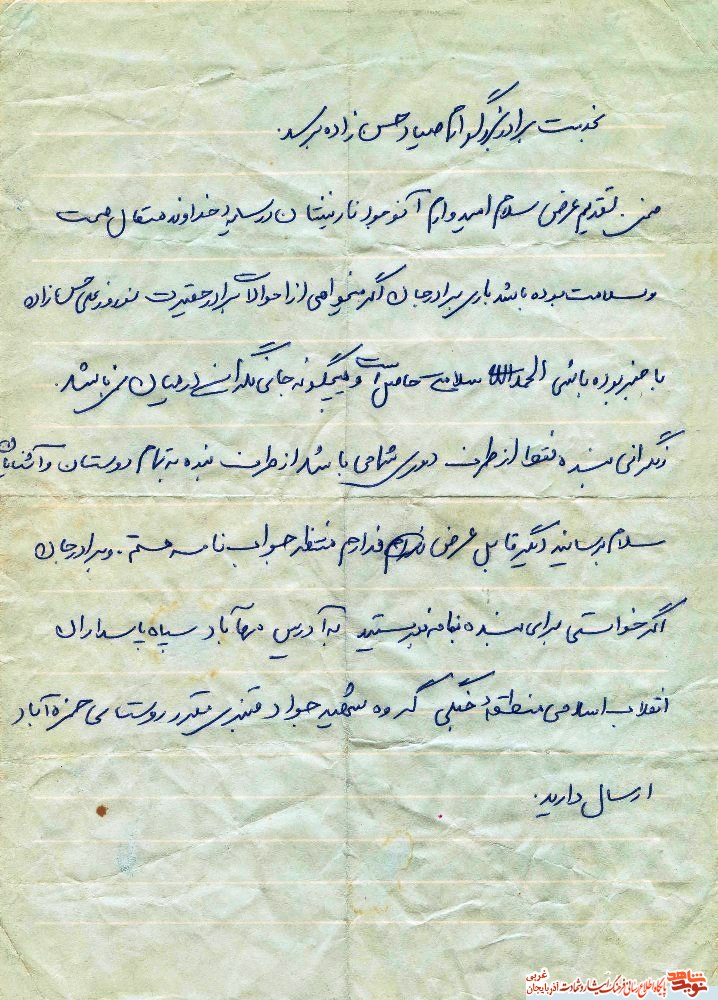 خدمت برادر بزرگوارم صیاد حسن زاده برسد.
ضمن تقدیم عرض سلام امیدوارم که وجود نازنینتان در سایه خداوند متعال صحت
و سلامت بوده باشد باری برادر جان اگر میخواهی از احوالات برادر حقیرت نوروزعلی حسن زاده
با خبر بوده باشی الحمدالله سلامتی حاصل است و هیچگونه جای نگرانی در میان نمی باشد.
نگرانی بنده فقط از طرف دوری شما می باشد از طرف بنده به تمام دوستان و آشنایان
سلام برسانید دیگر قابل عرض ندارم منتظر جواب نامه هستم. و برادر جان
اگر خواستی برای بنده نامه بنویسید به آدرس مهاباد سپاه پاسداران
انقلاب اسلامی منطقه جنگی گروه شهید جواد قنبری مقدر روستای حمزه آباد
ارسال دارید.
نوید شاهد
پایگاه اطلاع رسانی فرهنگ ایثار و شهادت آذربایجان غربی